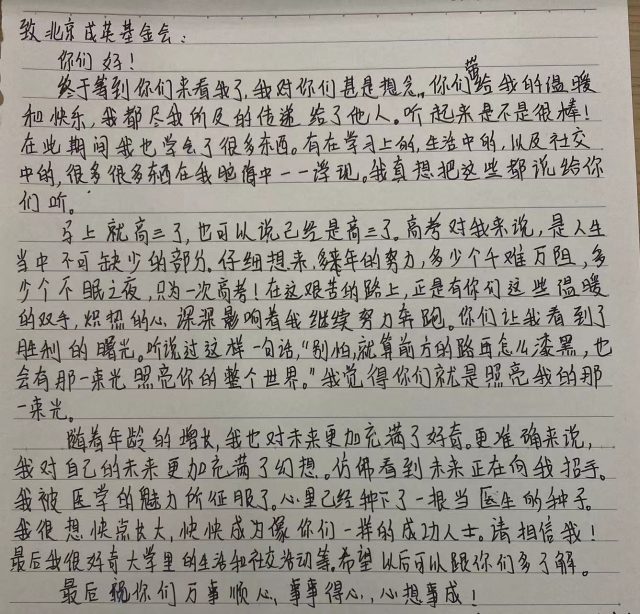 致北京成英基金会：
你们好！
终于等到你们来看我了，我对你们甚是想念。你们带给我的温暖
和快乐，我都尽我所及的传递给了他人。听起来是不是很棒！
在此期间我也学会了很多东西。有在学习上的，生活中的，以及社交
中的，很多很多东西在我脑海中一一浮现。我真想把这些都说给你
们听。
马上就高三了，也可以说已经是高三了。高考对我来说，是人生
当中不可缺少的部分。仔细想来，多年的努力，多少个千难万阻，多
少个不眠之夜，只为一次高考！在这艰苦的路上，正是有你们这些温暖
的双手，炽热的心深深影响着我继续努力奔跑。你们让我看到了
胜利的曙光。听说过这样一句话，“别怕，就算前方的路再怎么漆黑，也
会有那一束光照亮你的整个世界。”我觉得你们就是照亮我的那
一束光。
随着年龄的增长，我也对未来更加充满了好奇。更准确来说，
我对自己的未来更加充满了幻想。仿佛看到未来正在向我招手。
我被医学的魅力所征服了。心里已经种下了一根当医生的种子。
我很想快点长大，快快成为像你们一样的成功人士。请相信我！
最后我很好奇大学里的生活和社交活动等。希望以后可以跟你们多了解。
最后祝你们万事顺心，事事得心，心想事成！